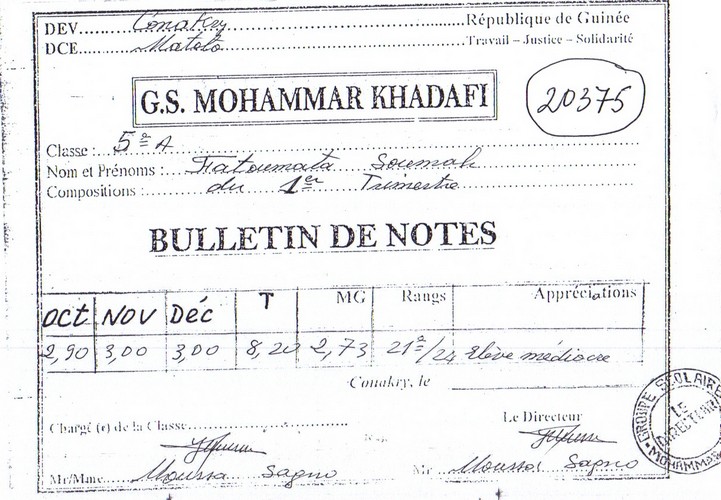 DEV....Conakry....République de Guinée
DCE....Matoto....Travail – Justice – Solidarité
G.S. MOHAMMAR KHADAFI
20375
Classe : 5è A
Nom et Prénoms : Fatoumata Soumah
Compositions : du 1er Trimestre
BULLETIN DE NOTES
oct NOV Déc T MG Rangs Appréciations
2,90 3,00 3,00 8,20 2,73 21è/24 élève médiocre
Conakry, le
Chargé (e) de la Classe Le Directeur
Mr/Mme Moussa Sagno Mr Moussa Sagno
GROUPE SCOLAIRE
LE
DIRECTEUR
MOHAMMAR